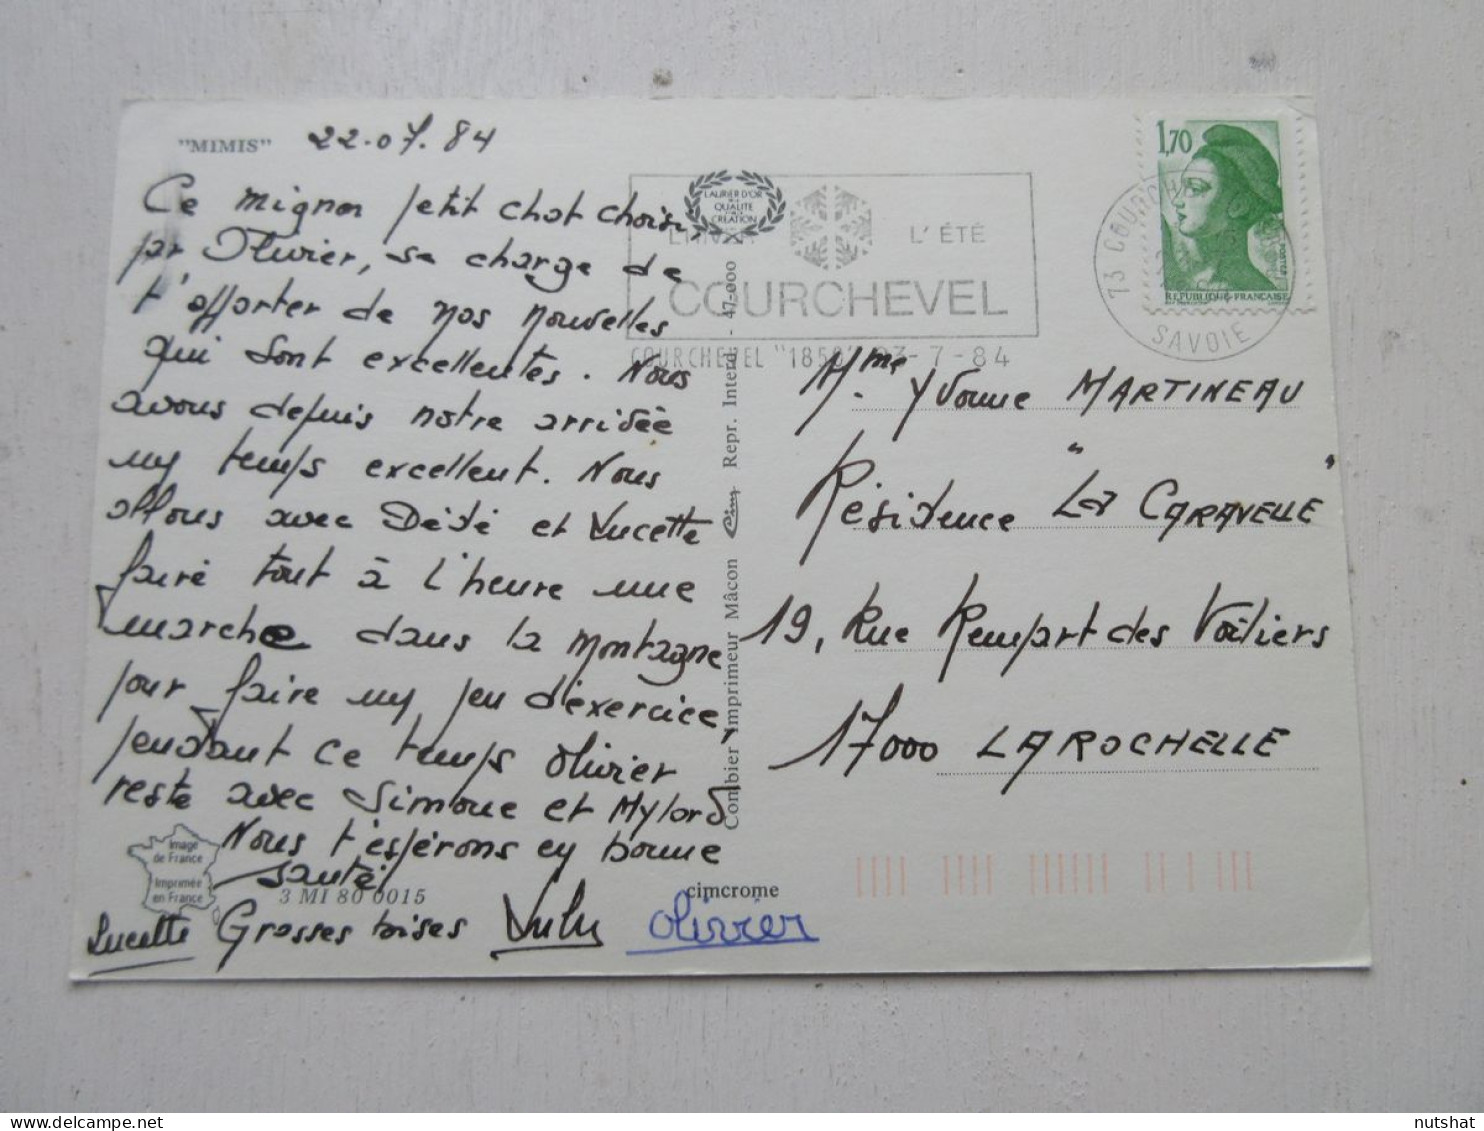 "MIMIS" 22-07.84
Ce mignon petit chat choisi,
par Olivier, se charge de
t'apporter de nos nouvelles
qui sont excellentes. Nous
avons depuis notre arrivée
un temps excellent. Nous
allons avec Dédé et Lucette
faire tout à l'heure une
marche dans la montagne
pour faire un peu d'exercice,
pendant ce temps Olivier
reste avec Simone et Mylord
Nous t'espérons en bonne
santé
Lucette Grosses bises Lulu Olivier
Image
de France
Imprimée
en France
3 MI 80 0015
cimcrome
Combier Imprimeur Mâcon Cim Repr. Interd. - 47-000
LAURIER D'OR
DE LA
QUALITE
CREATION
L'HIVER L'ÉTÉ
COURCHEVEL
COURCHEVEL "1850" 23-7-84
73 COURCHEVEL
SAVOIE
1,70
POSTES
REPUBLIQUE FRANÇAISE
Mme Yvonne MARTINEAU
Résidence "LA CARAVELLE"
19, Rue Rempart des Voiliers
17000 LA ROCHELLE
nutshat